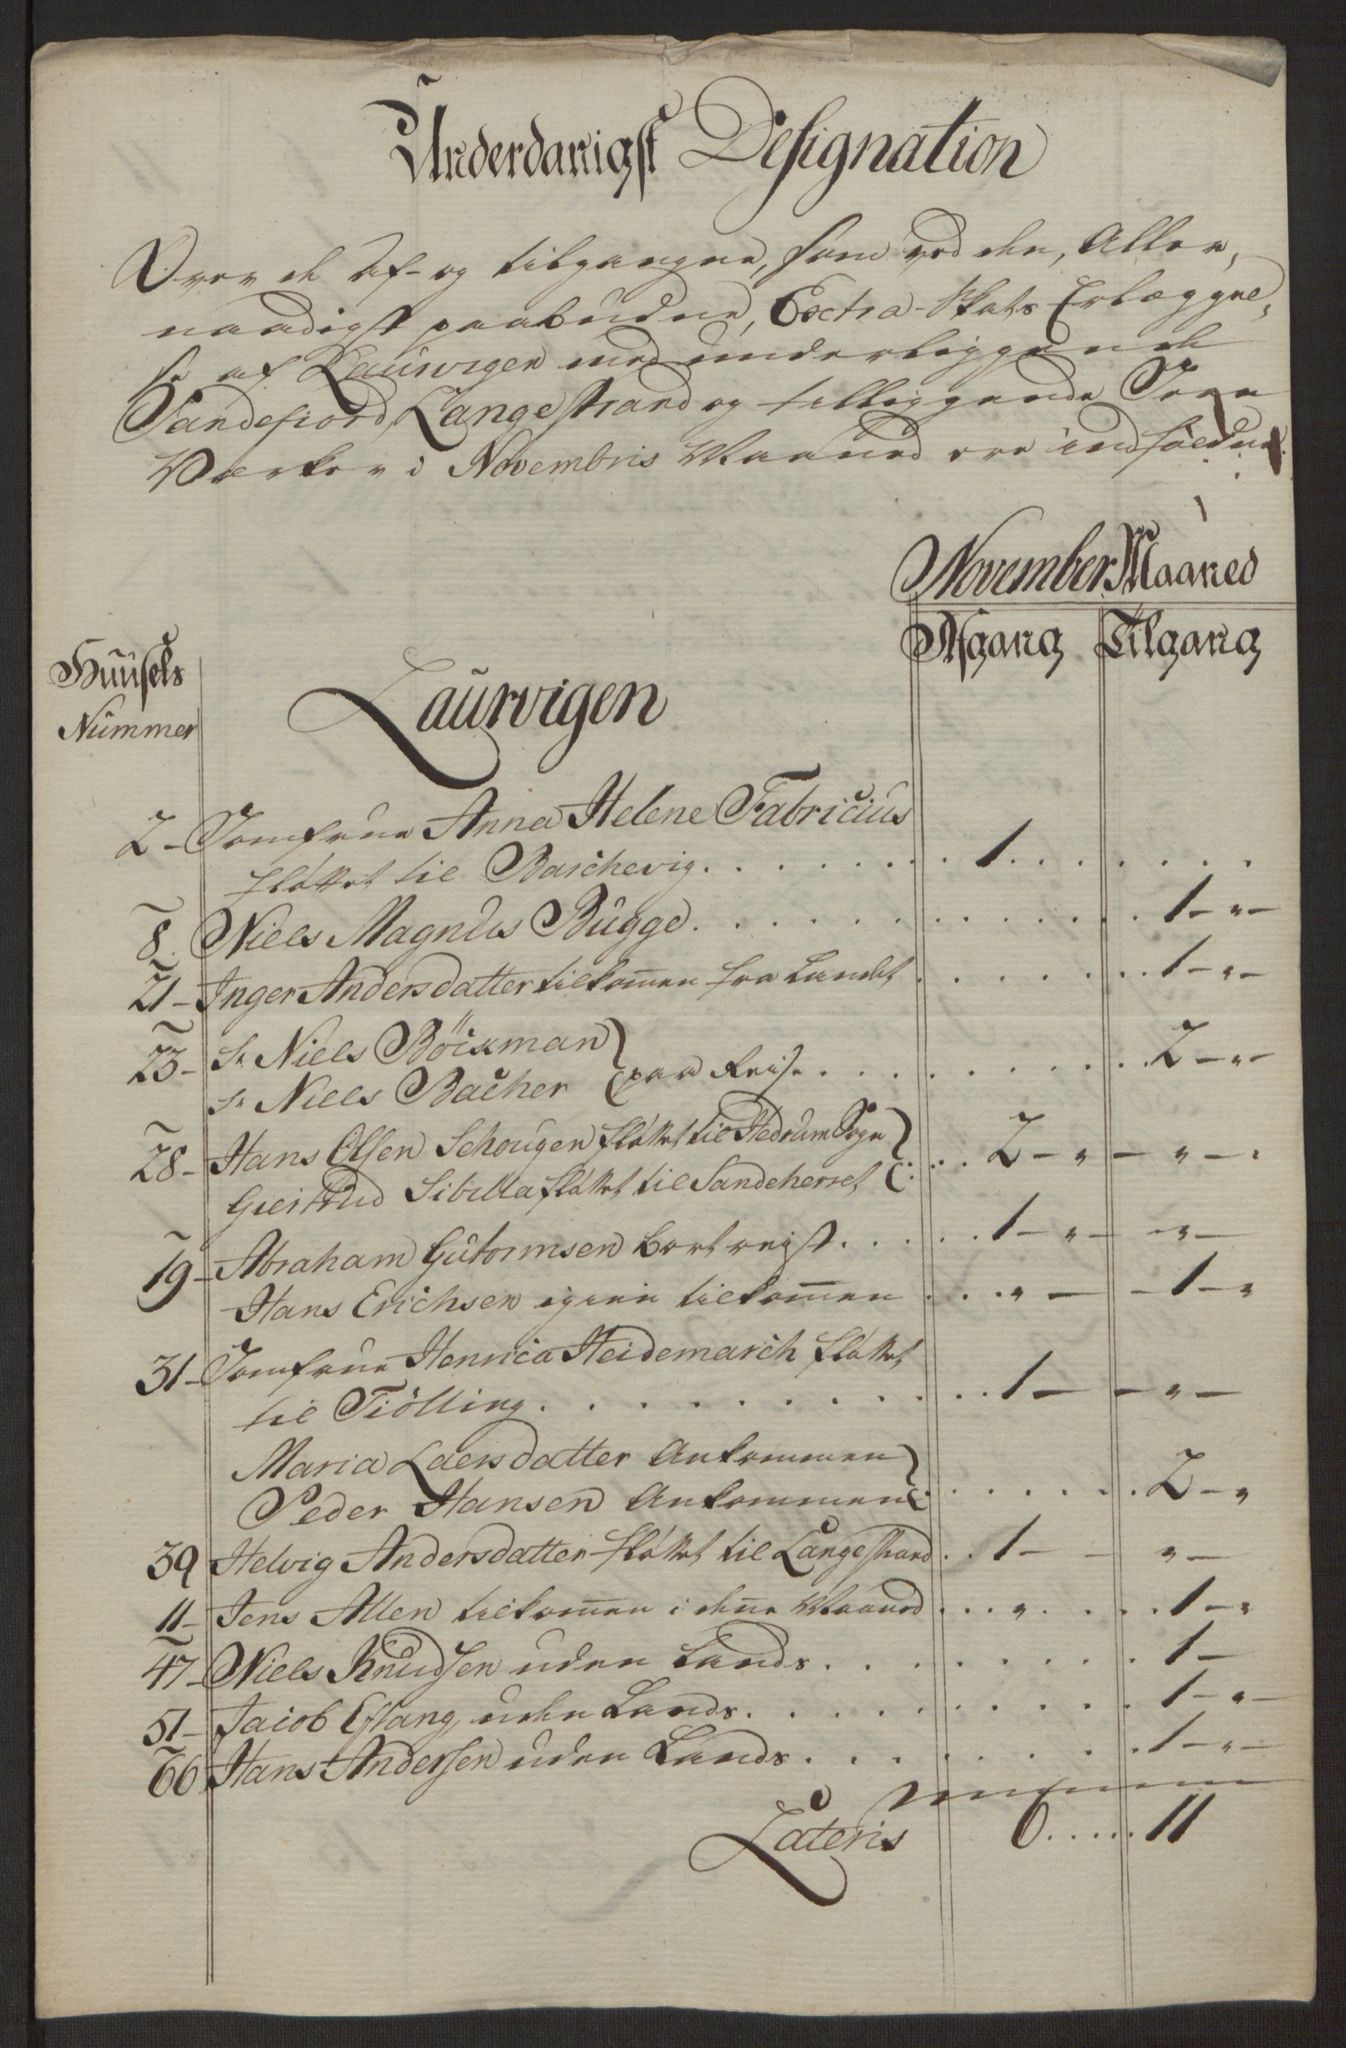 Underdanigst Designation
Over de Af- og tilgangne, som ved den, Aller,
naadigst paabudne, Extra-Skats Erlæggel,
se af Laurvigen med underliggende
Sandefiord, Langestrand og tilliggende Jern
Værker i Novembris Maaned ere indfaldne.
November Maaned
Huusets Nummer
Afgang Tilgang
Laurvigen
2 - Jomfrue Anna Helene Fabricius
fløttet til Barchevig . . . 1 . . .
8. Niels Magnus Bugge . . . 1 - " -
21 - Inger Andersdatter tilkom̄en fra Landet . . . 1 - " -
23 - Sr Niels Böckman
Sr Niels Bacher } paa Reise . . . 2 - " -
28 - Hans Olsen Schougen fløttet til Hedrum Sogn
Giertrud Sibilla fløttet til Sandeherret } . . . 2 - " - " - .
19 - Abraham Gutormsen bortreist . . . 1 - " - " -
Hans Erichsen igien tilkom̄en . . . " - - 1 - "
31 - Jomfrue Henrica Heidemarch fløttet
til Tiölling . . . 1 - - " -
Maria Laersdatter Ankommen
Peder Hansen Ankommen } . . . 2 - "
39 Helvig Andersdatter fløttet til Langestrand . . 1 - - " -
11 - Jens Allen tilkom̄en i den̄e Maaned . . . " . . . 1 - "
47 - Niels Knudsen uden Lands . . . 1 -
51 - Jacob Eftang uden Lands . . . 1 - " -
66 Hans Andersen uden Lands . . . 1 - " -
Lateris 6 . . . . . 11